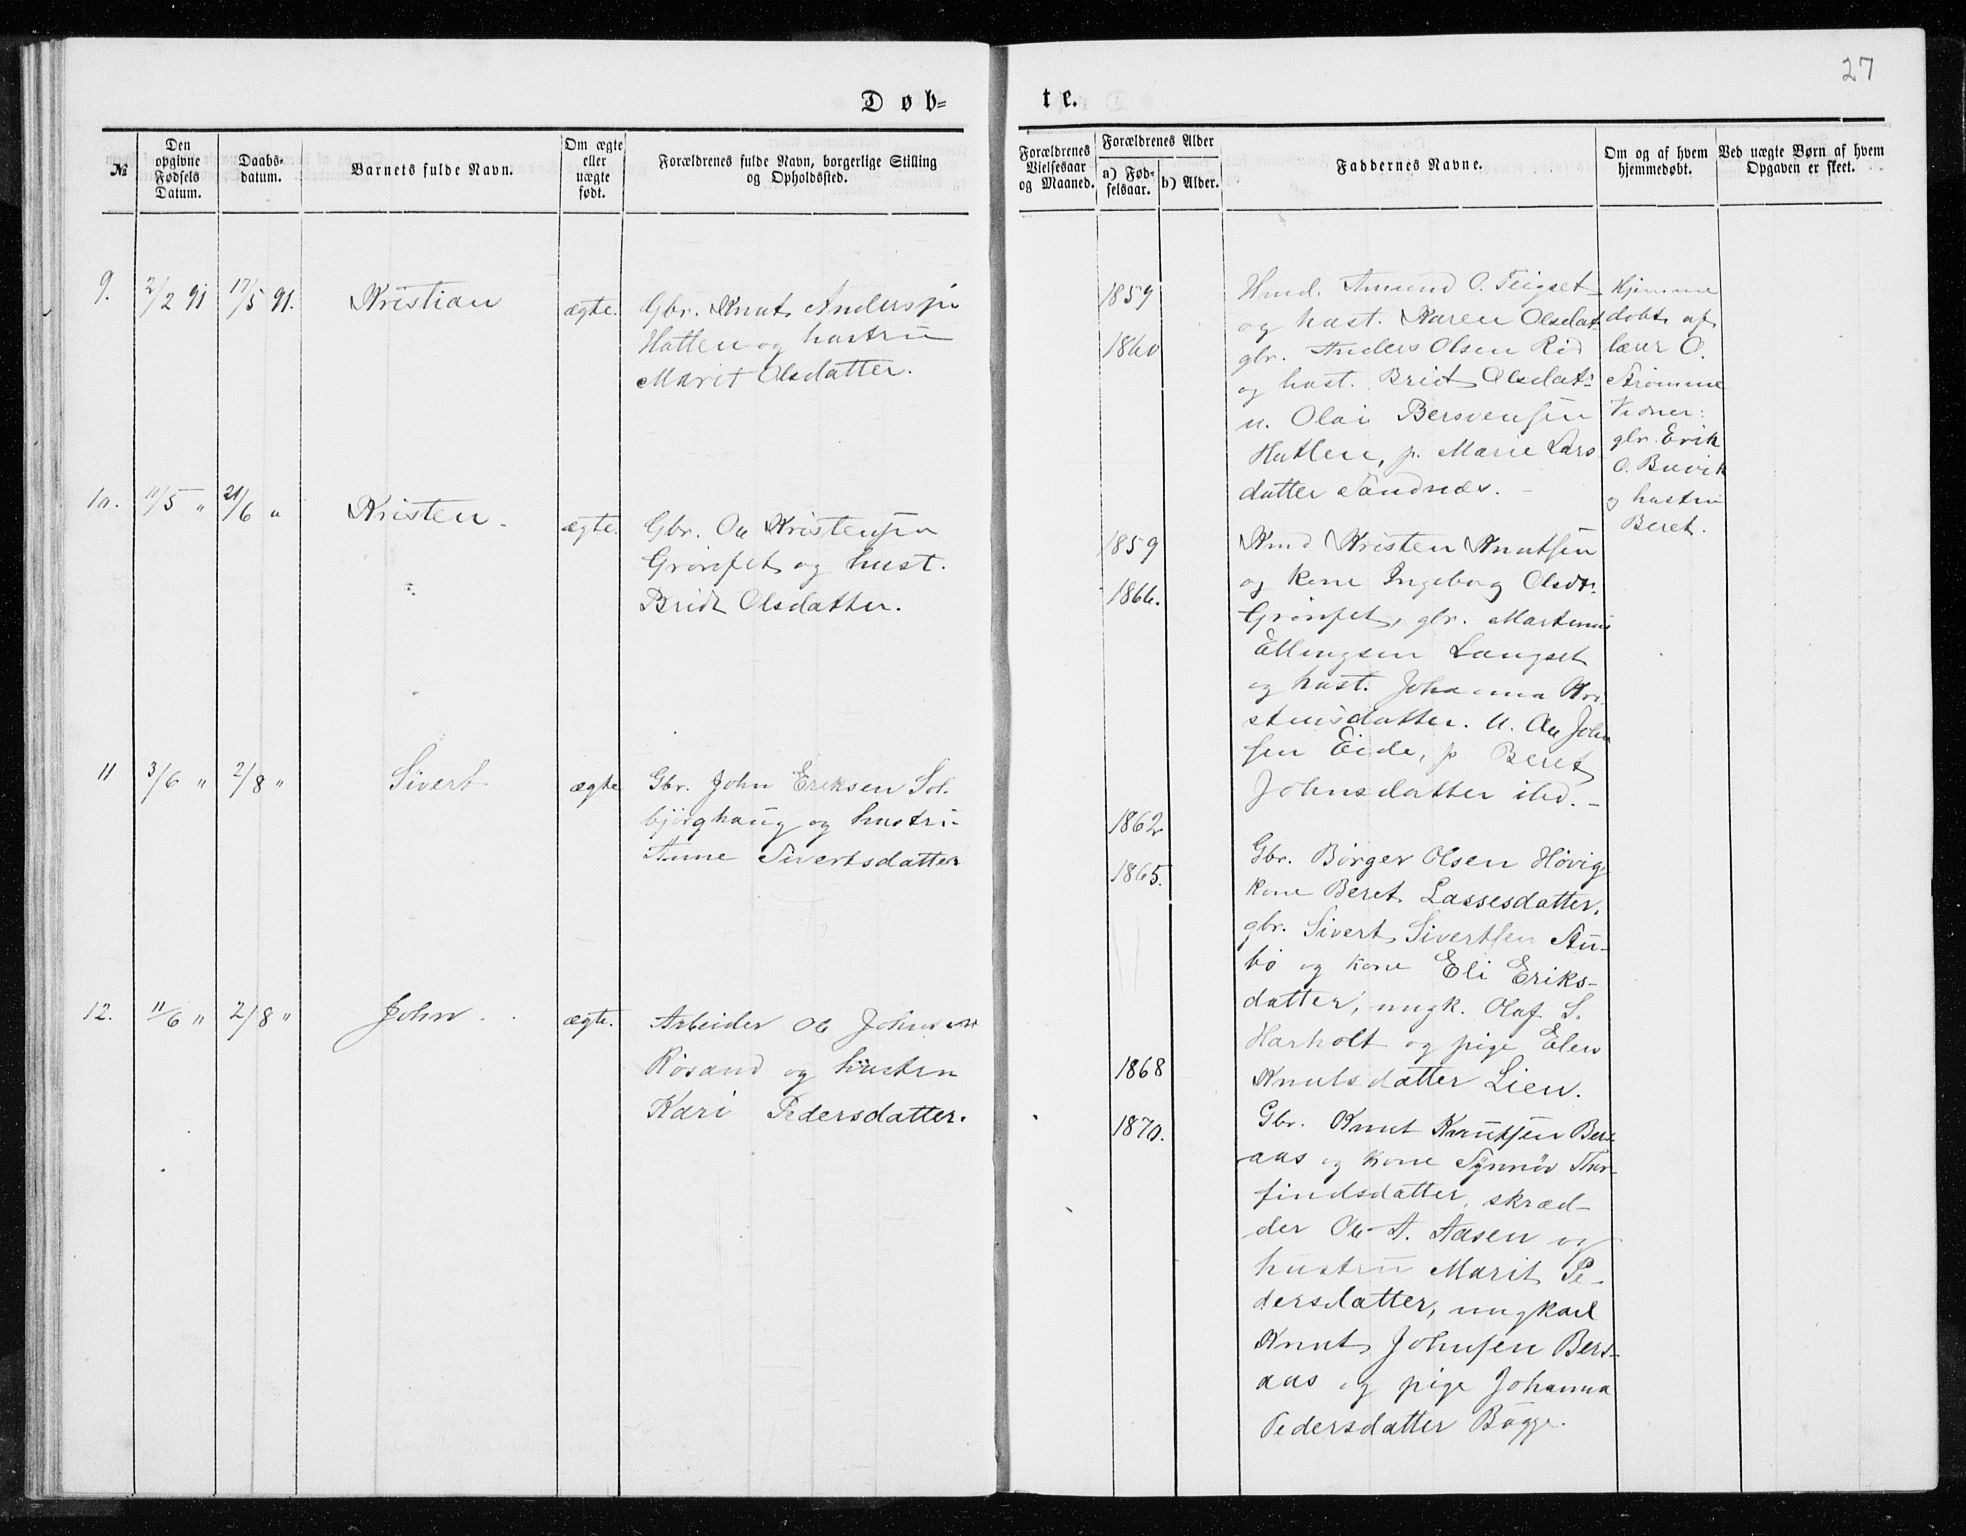 27
Døb-
te.
№
Den opgivne Fødsels Datum.
Daabs-datum.
Barnets fulde Navn.
Om ægte eller uægte født.
Forældrenes fulde Navn, borgerlige Stilling og Opholdssted.
Forældrenes Vielsesaar og Maaned.
Forældrenes Alder
a) Fød-selsaar.
b) Alder.
Faddernes Navne.
Om og af hvem hjemmedøbt.
Ved uægte Børn af hvem Opgaven er skeet.
9.
2/2 91
17/5 91.
Kristian
ægte.
Gbr. Knut Andersen
Hatlen og hustru
Marit Olsdatter.
1859
1860
Hmd. Amund O. Teigset
og hust. Karen Olsdat
gbr. Anders Olsen Rød
og hust. Brit Olsdat.
u. Olai Bersvensen
Hatlen, p. Marie Lars
datter Sandnes.
Hjemme
døbt af
lærer O.
Strømme
Vidner:
gbr. Erik
O. Buvik
og hustru
Beret.
10.
11/5 "
21/6 "
Kristen.
ægte.
Gbr. Ole Kristensen
Grønset og hust.
Brit Olsdatter.
1859
1866.
Kmd Kristen Knutsen
og kone Ingeborg Olsdt.
Grønset, gbr. Martinus
Ellingsen Langset
og hust. Johanna Kri
stensdatter. U. Ole John
sen Eide, p Beret
Johnsdatter ibd.
11
3/6 "
2/8 "
Sivert.
ægte
Gbr. John Eriksen Sol-
bjørghaug og hustru
Anne Sivertsdatter
1862
1865.
Gbr. Børger Olsen Høvig
kone Beret Lassesdatter.
gbr. Sivert Sivertsen Au-
bø og kone Eli Eriks-
datter, ungk. Olaf S.
Harholt og pige Elen
Knutsdatter Lien.
12.
11/6 "
2/8 "
John.
ægte.
Arbeider Ole Johnsen
Røsand og hustru
Kari Pedersdatter.
1868
1870.
Gbr. Knut Knutsen Bers-
aas og kone Synnøv Thor-
findsdatter, skræd-
der Ole A. Aasen og
hustru Marit Pe-
dersdatter, ungkarl
Knut Johnsen Bers-
aas og pige Johanna
Pedersdatter Bøgge.